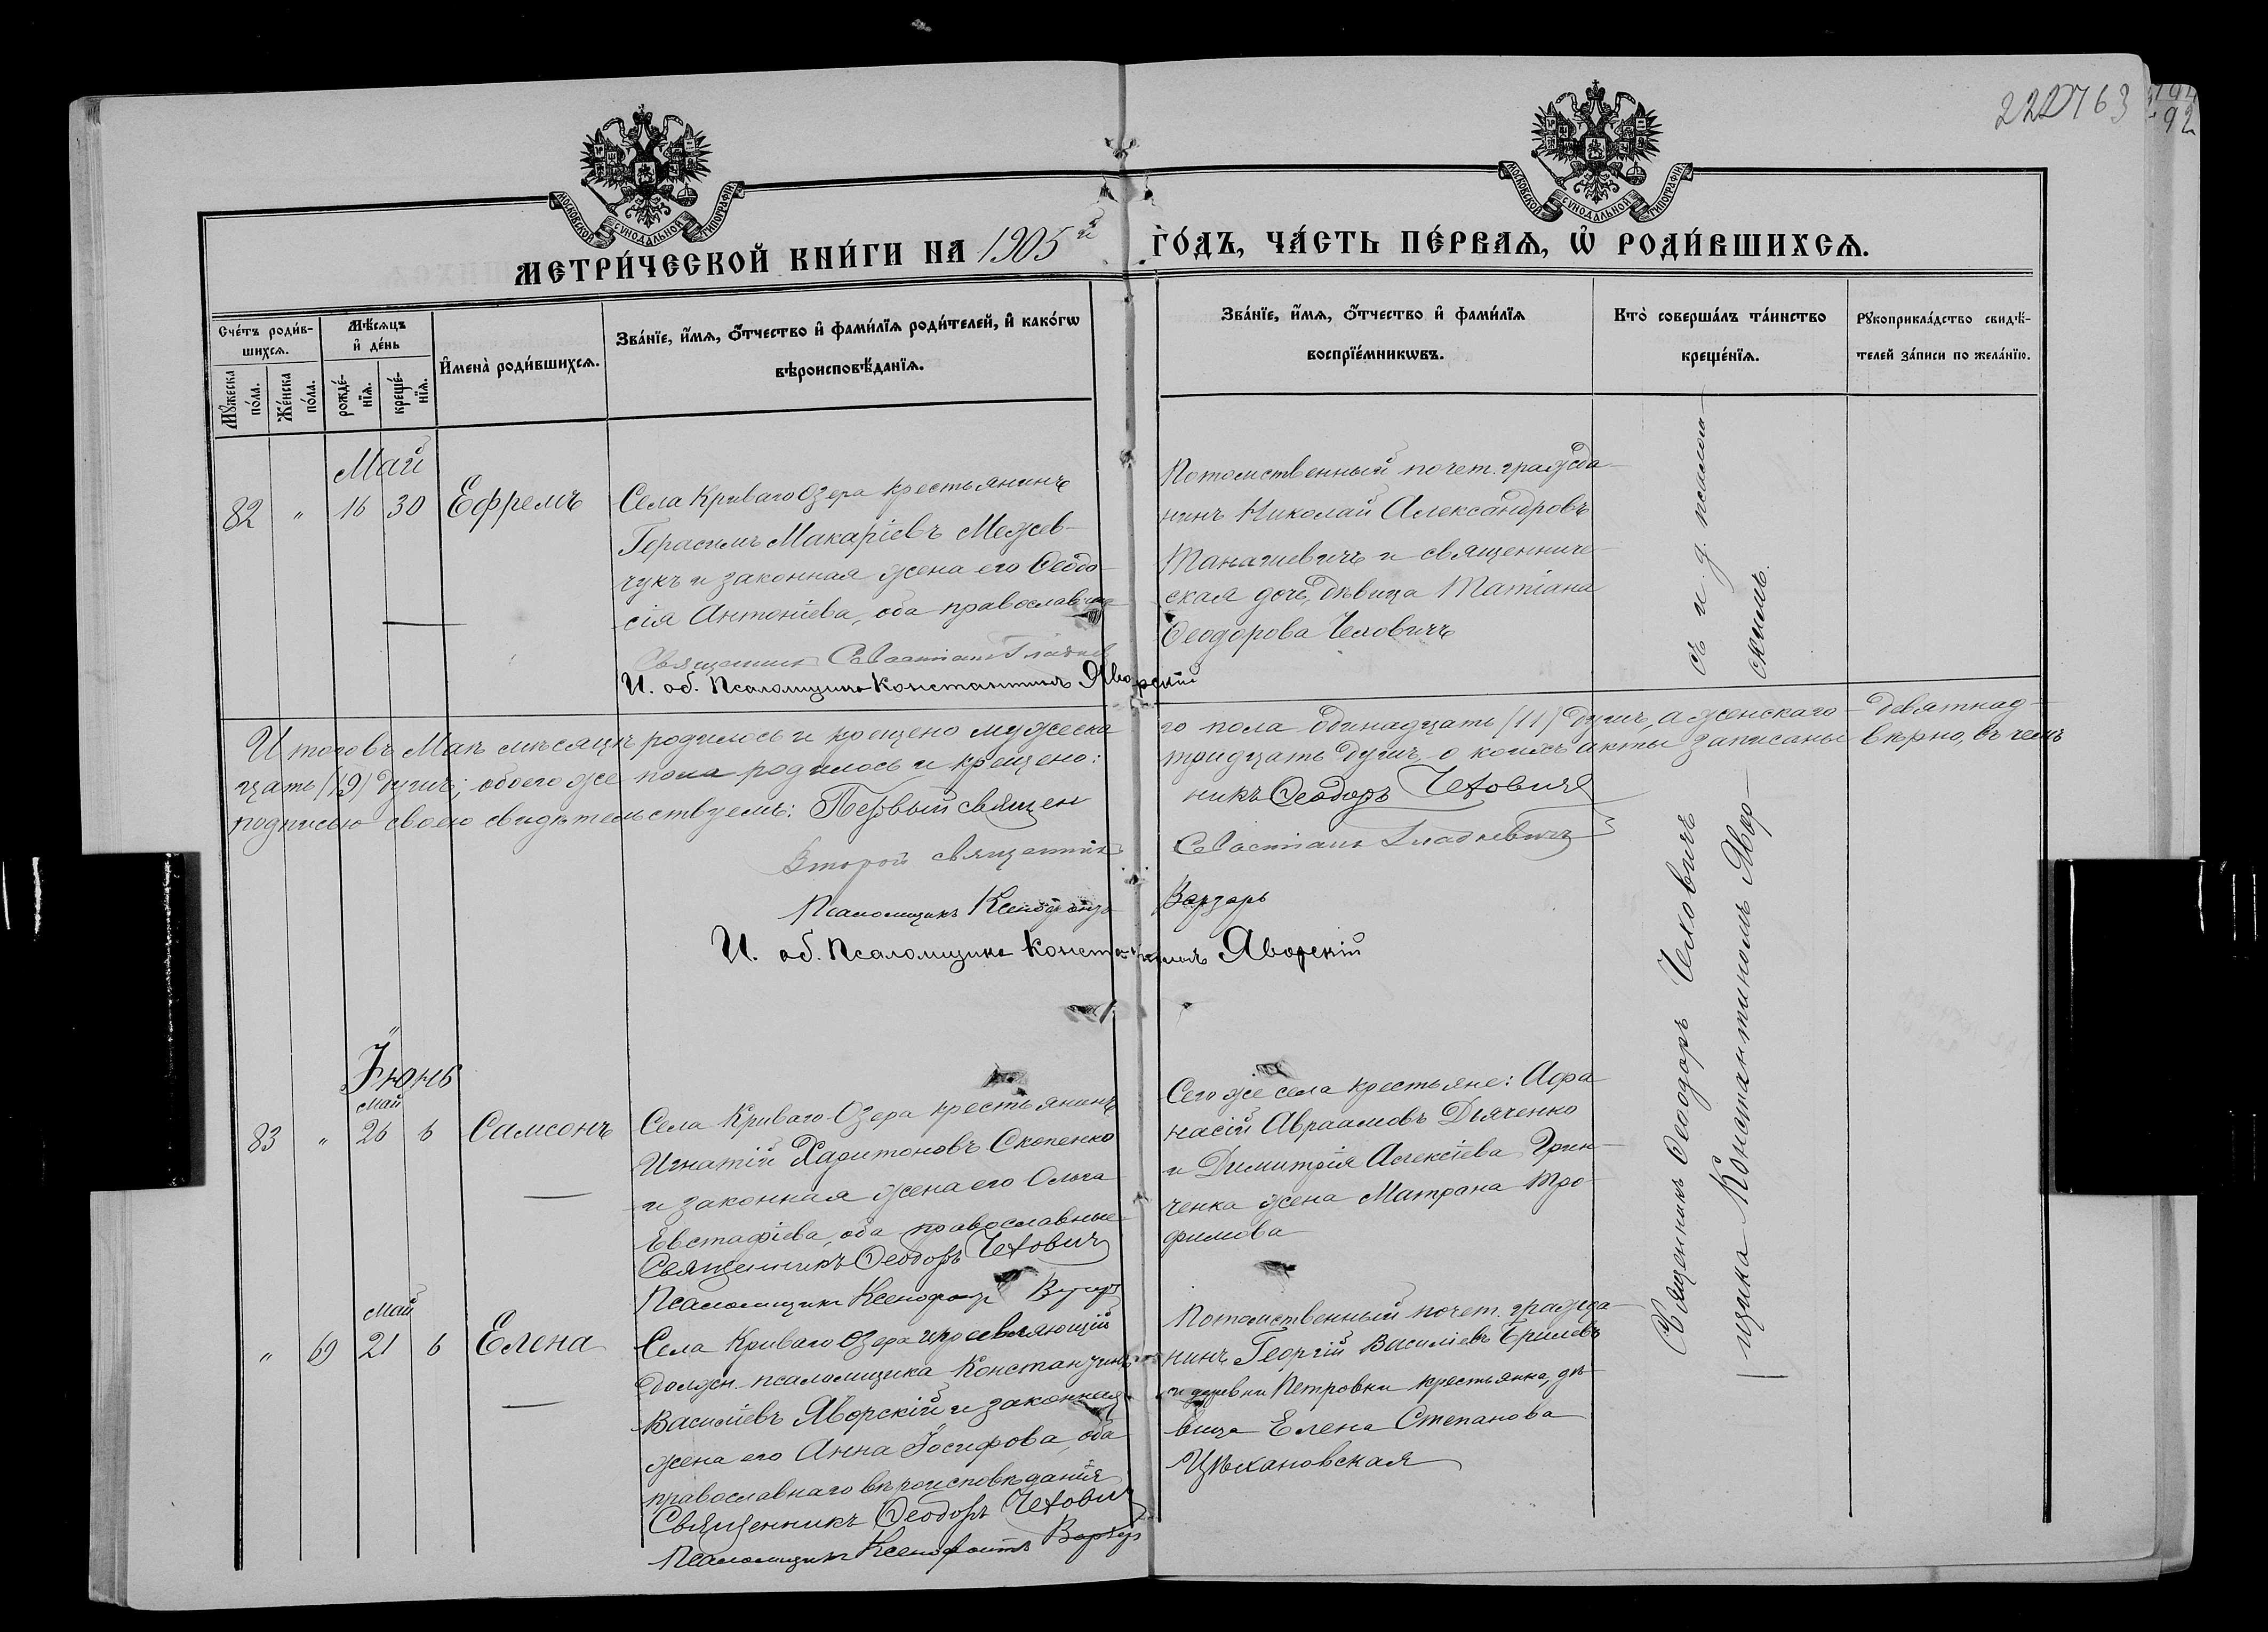 222 763
92
МОСКОВСКОЙ СѴНОДАЛЬНОЙ ТИПОГРАФІИ
МОСКОВСКОЙ СѴНОДАЛЬНОЙ ТИПОГРАФІИ
МЕТРИ́ЧЕСКОЙ КНИ́ГИ НА 1905й ГО́ДЪ, ЧА́СТЬ ПЕ́РВАѦ, Ѡ҆ РОДИ́ВШИХСѦ.
Сче́тъ роди́в-
шихсѧ.
Мѹ́жеска
по́ла.
Же́нска
по́ла.
Мѣ́сѧцъ
и҆ де́нь
рожде́-
нїѧ.
креще́-
нїѧ.
И҆мена̀ роди́вшихсѧ.
Зва́нїе, и҆́мѧ, ѻ҆́тчество и҆ фами́лїѧ роди́телей, и҆ како́гѡ
вѣроисповѣ́данїѧ.
Зва́нїе, и҆́мѧ, ѻ҆́тчество и҆ фами́лїѧ
воспрїе́мникѡвъ.
Кто̀ соверша́лъ та́инство
креще́нїѧ.
Рѹкоприкла́дство свидѣ́-
телей за́писи по жела́нїю.
Май
82 " 16 30 Ефремъ
Села Криваго Озера крестьянинъ
Герасимъ Макаріевъ Межев-
чукъ и законная жена его Ѳеодо-
сія Антоніева, оба православные
Священникъ Савастіанъ Гладкев
И. об. Псаломщика Константинъ Яворскій
Потомственный почет. гражда-
нинъ Николай Александровъ
Танашевичъ и священниче-
ская дочь, дѣвица Татіана
Ѳеодорова Чеховичъ
Итого въ Маѣ мѣсяцѣ родилось и крещено мужеска го пола одинадцать (11) душъ, а женскаго – девятнад-
цать (19) душъ; обоего же пола родилось и крещено: тридцать душъ, о коихъ акты записаны вѣрно, въ чемъ
подписью своею свидѣтельствуемъ: Первый священ никъ Ѳеодоръ Чеховичъ
Второй священникъ Савастіанъ Гладкевичъ
Псаломщикъ Ксенофонтъ Варзарь
И. об. Псаломщика Константинъ Яворскій
Іюнь
Май
83 " 26 6 Самсонъ
Села Криваго Озера крестьянинъ
Игнатій Харитоновъ Скопенко
и законная жена его Ольга
Евстафіева, оба православные
Священникъ Ѳеодоръ Чеховичъ
Псаломщикъ Ксенофонтъ
Сего же села крестьяне: Афа-
насій Авраамовъ Дяченко
и Димитрія Алексіева Грин-
ченка жена Матрона Тро-
фимова
Май
" 69 21 6 Елена
Села Криваго Озера исправляющій
должн. псаломщика Константинъ
Василіевъ Яворскій и законная
жена его Анна Іосифова, оба
православнаго вѣроисповѣданія
Священникъ Ѳеодоръ Чеховичъ
Псаломщикъ Ксенофонтъ Варзарь
Потомственный почет. гражда-
нинъ Георгій Василіевъ
и деревни Петровки крестьянка, дѣ-
вица Елена Степанова
Цѣхановская
Священникъ Ѳеодоръ Чеховичъ съ и. д. псаломщика Константиномъ Яворскимъ.